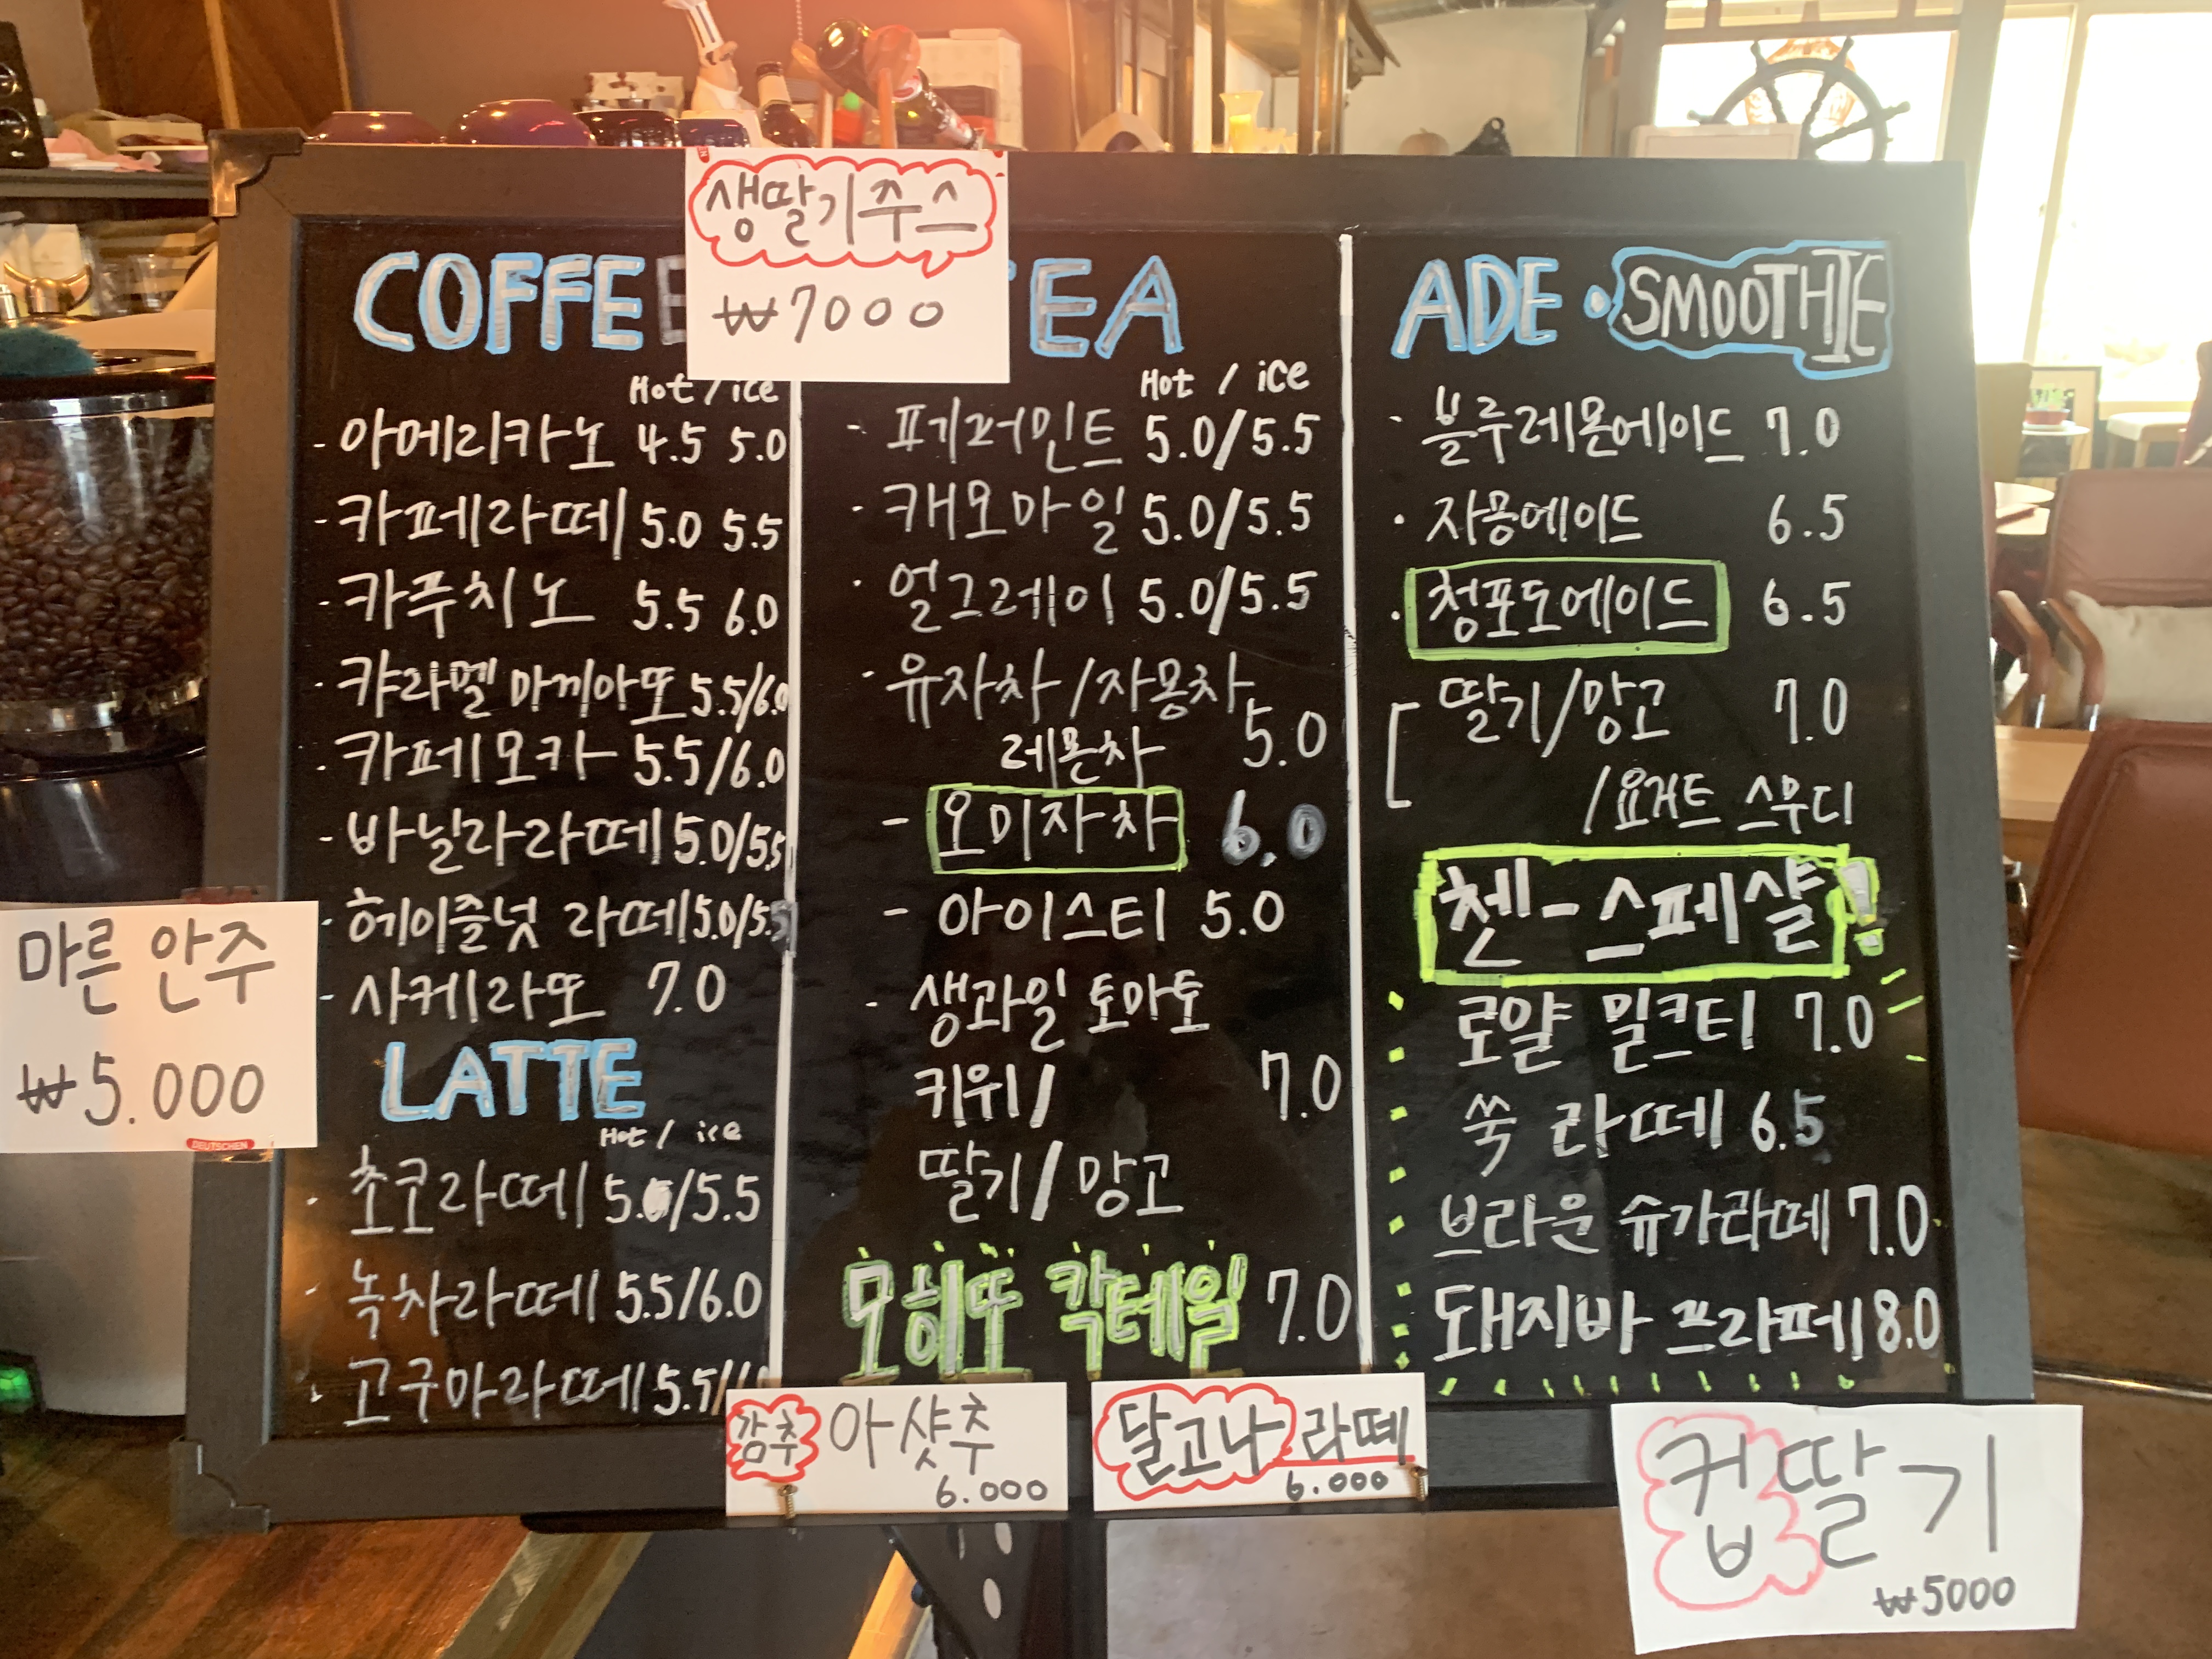 생딸기주스
₩7000
COFFEE
Hot / ice
- 아메리카노 4.5 5.0
- 카페라떼 5.0 5.5
- 카푸치노 5.5 6.0
· 캬라멜 마끼아또 5.5/6.0
· 카페모카 5.5/6.0
- 바닐라라떼 5.0/5.5
· 헤이즐넛 라떼 5.0/5.5
- 사케라또 7.0
LATTE
Hot / ice
· 초코라떼 5.0/5.5
· 녹차라떼 5.5/6.0
· 고구마라떼 5.5/
마른 안주
₩5.000
DEUTSCHEN
EA
Hot / ice
- 페퍼민트 5.0/5.5
· 캐모마일 5.0/5.5
· 얼그레이 5.0/5.5
· 유자차/자몽차
레몬차 5.0
- 오미자차 6.0
- 아이스티 5.0
· 생과일 토마토
키위/ 7.0
딸기/망고
모히또 칵테일 7.0
ADE · SMOOTHIE
· 블루레몬에이드 7.0
· 자몽에이드 6.5
· 청포도에이드 6.5
[ 딸기/망고 7.0
/요거트 스무디
첸-스페셜!
로얄 밀크티 7.0
쑥 라떼 6.5
브라운 슈가라떼 7.0
돼지바 프라페 8.0
강추 아샷추
6.000
달고나 라떼
6.000
컵딸기
₩5000